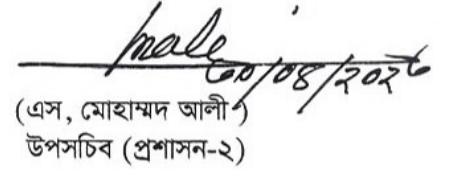 ৩০/০৪/২০২৬
(এস, মোহাম্মদ আলী)
উপসচিব (প্রশাসন-২)